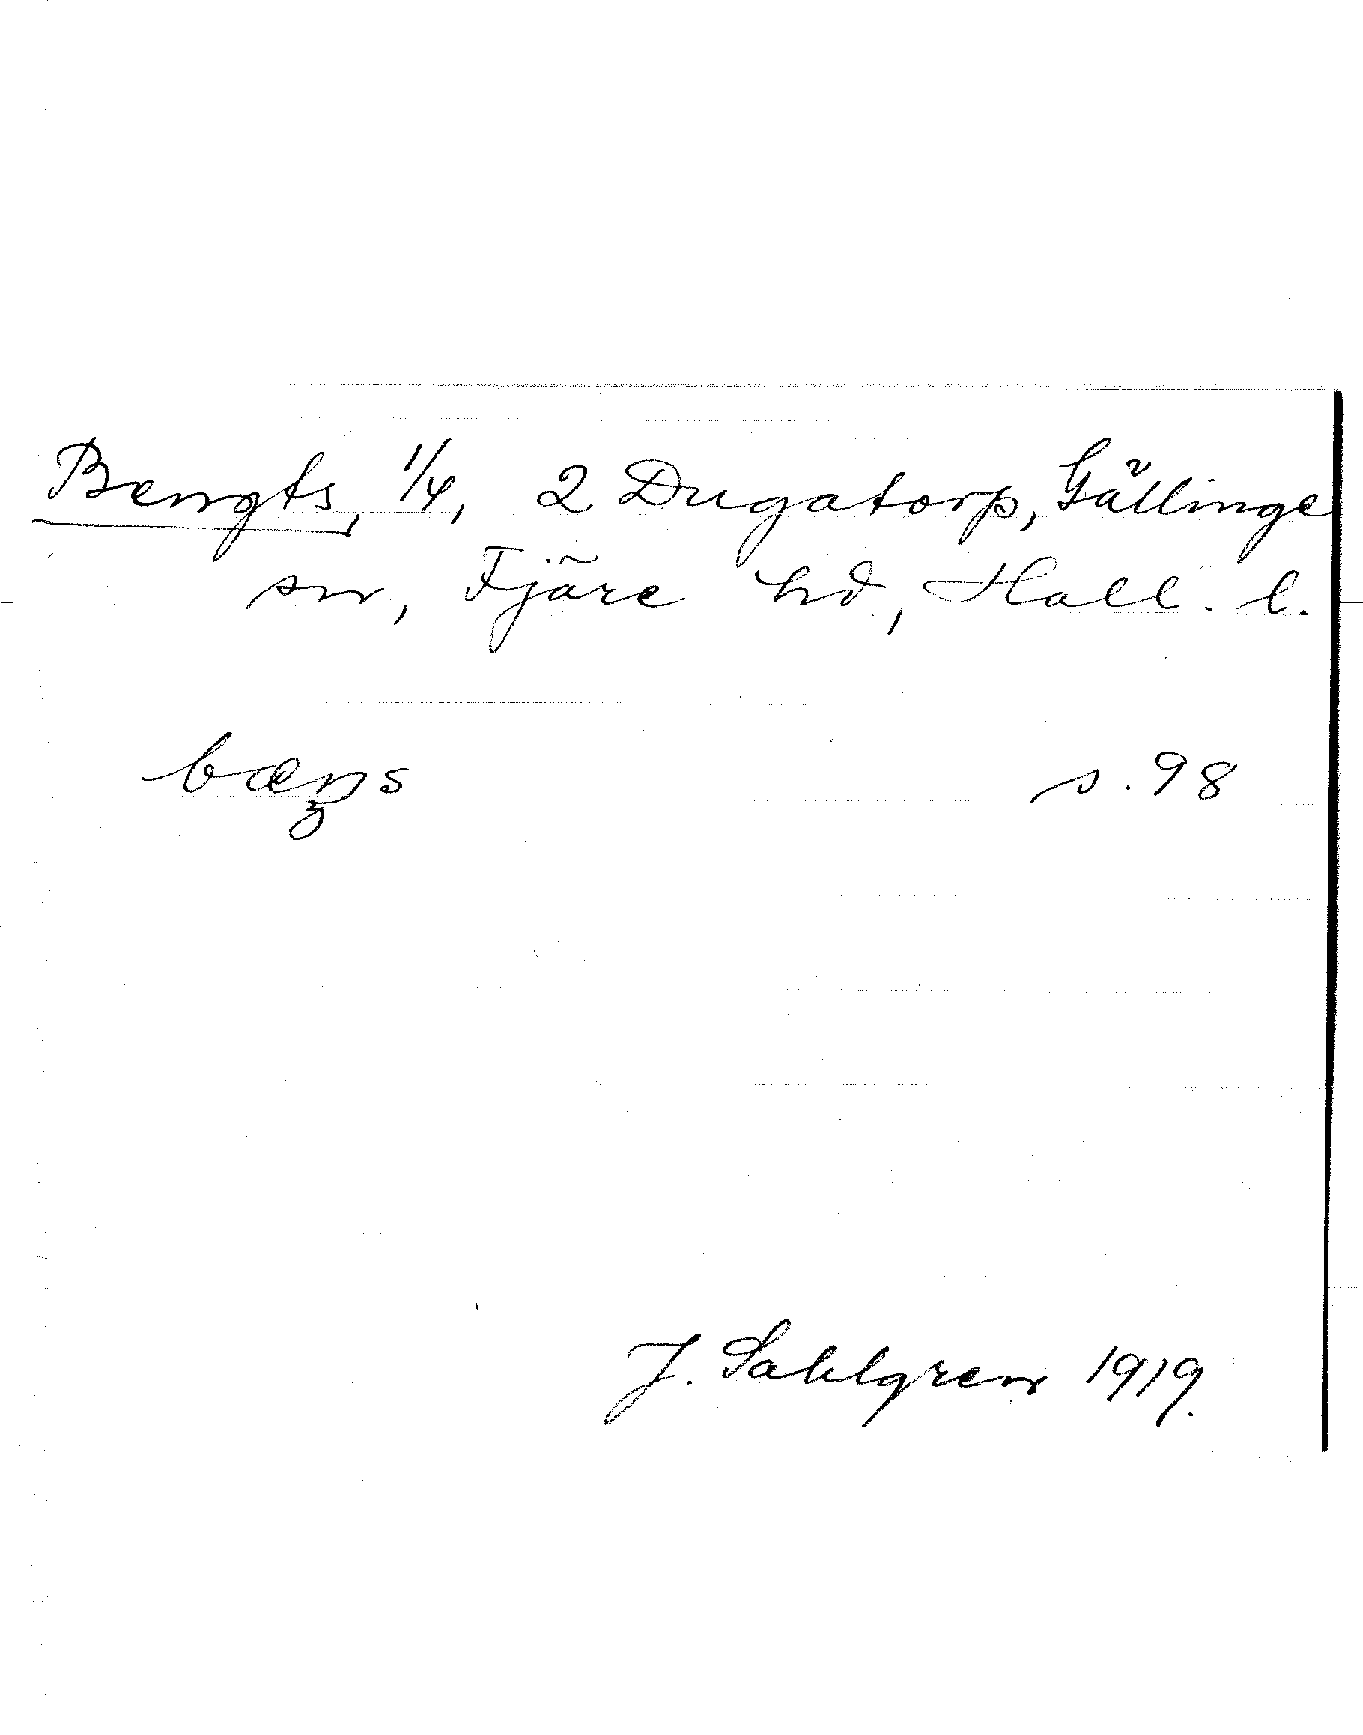 Bengts, 1/4, 2 Dugatorp, Gällinge
sn, Fjäre hd, Hall. l.
s. 98
J. Sahlgren 1919.